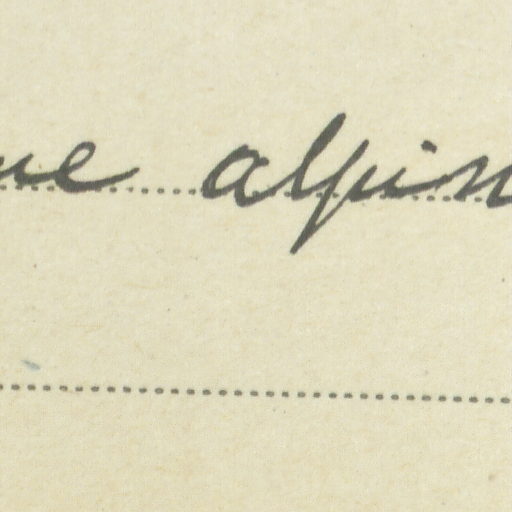 ue alpin